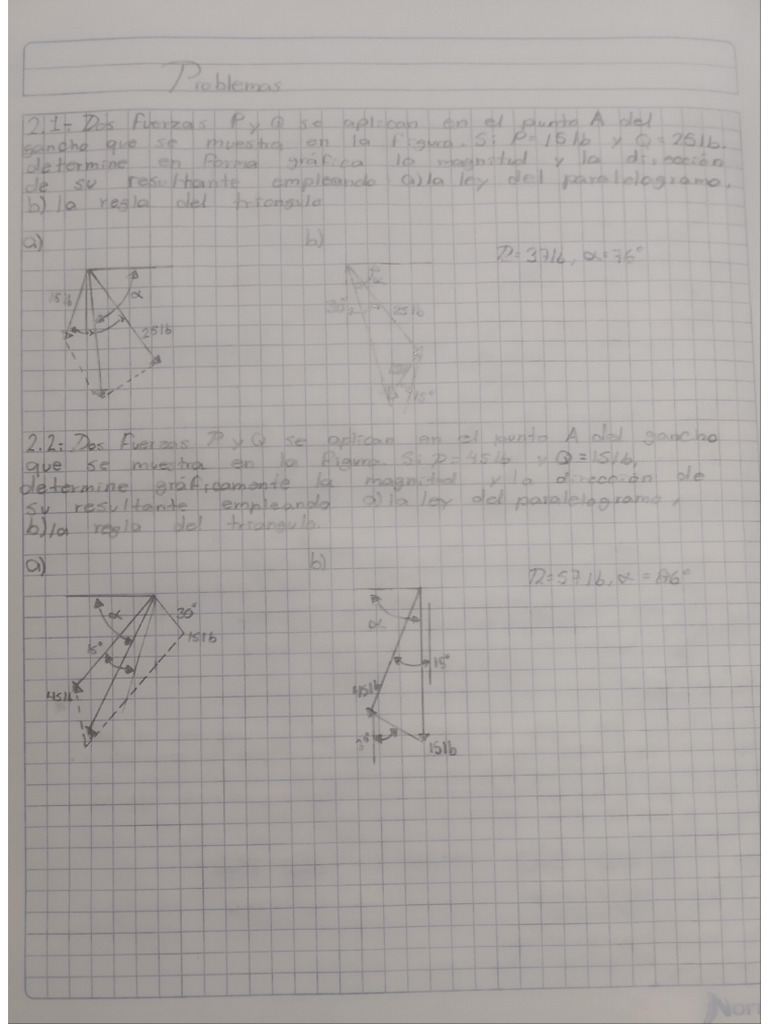 Problemas
2.1- Dos Fuerzas P y Q se aplican en el punto A del
gancho que se muestra en la figura. Si P=15lb y Q=25lb.
determine en forma gráfica la magnitud y la dirección
de su resultante empleando a) la ley del paralelogramo,
b) la regla del triangulo
a)
b)
R=37lb, α=76°
15lb
α
25lb
α
25lb
15°
2.2- Dos Fuerzas P y Q se aplican en el punto A del gancho
que se muestra en la figura. Si P=45lb y Q=15lb,
determine gráficamente la magnitud y la dirección de
su resultante empleando a) la ley del paralelogramo,
b) la regla del triangulo.
a)
b)
R=57lb, α=86°
α
30°
15lb
15°
45lb
α
15°
45lb
15lb
Nor